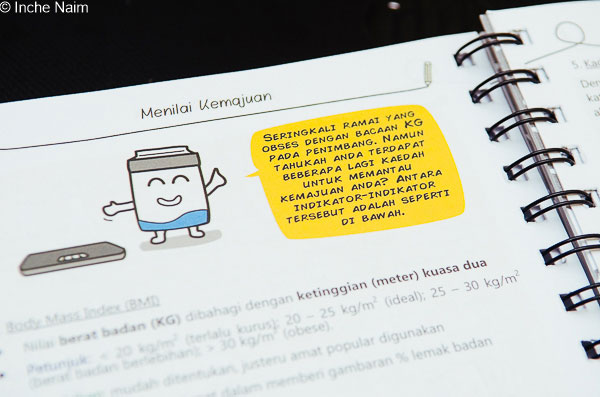 © Inche Naim
Menilai Kemajuan
SERINGKALI RAMAI YANG
OBSES DENGAN BACAAN KG
PADA PENIMBANG. NAMUN
TAHUKAH ANDA TERDAPAT
BEBERAPA LAGI KAEDAH
UNTUK MEMANTAU
KEMAJUAN ANDA? ANTARA
INDIKATOR-INDIKATOR
TERSEBUT ADALAH SEPERTI
DI BAWAH.
Body Mass Index (BMI)
Nilai berat badan (KG) dibahagi dengan ketinggian (meter) kuasa dua
Petunjuk: < 20 kg/m² (terlalu kurus); 20 – 25 kg/m² (ideal); 25 – 30 kg/m²
(berat badan berlebihan); > 30 kg/m² (obese).
mudah ditentukan, justeru amat popular digunakan
dalam memberi gambaran % lemak badan
5.